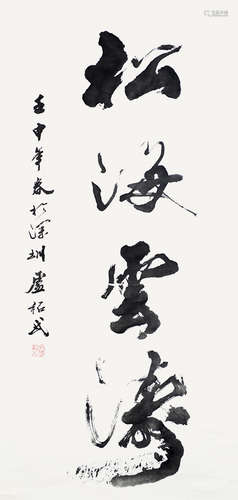 松海雲濤
壬申年春於深圳盧柘民